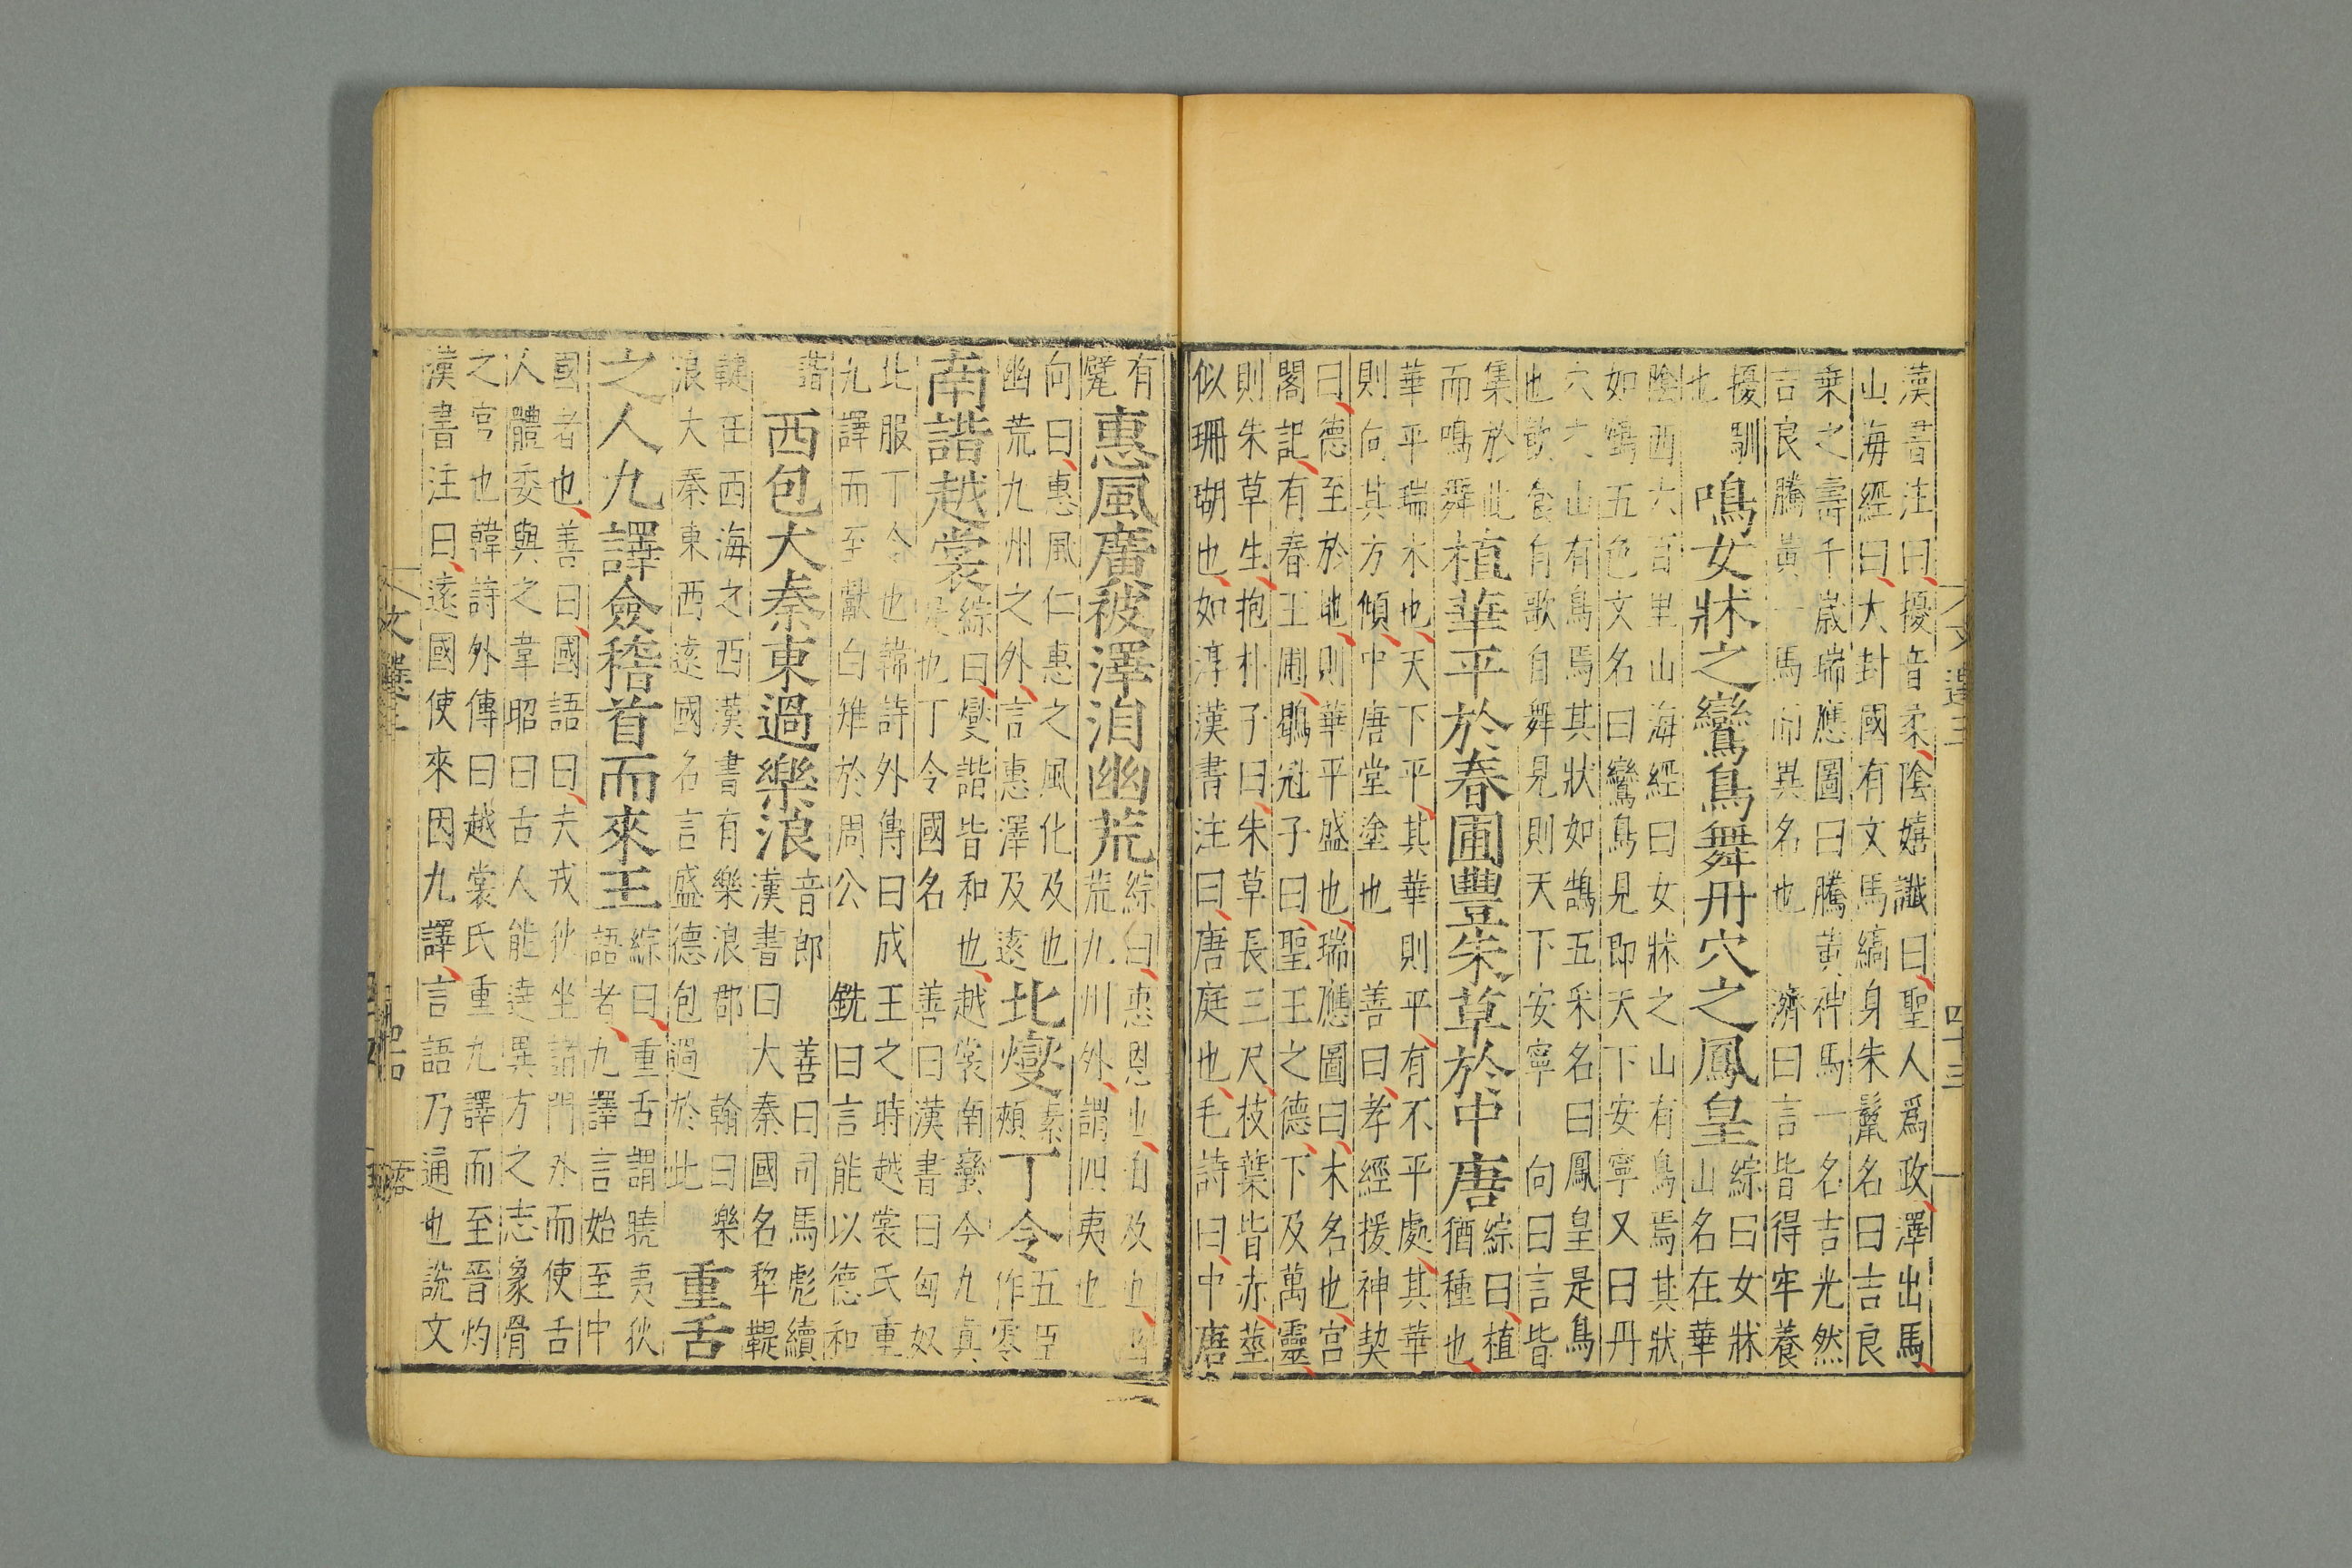 漢書注曰擾音柔陰嬉讖曰聖人爲政澤出馬
山海經曰大封國有文馬縞身朱鬣名曰吉良
乗之壽千歲瑞應圖曰騰黃神馬一名吉光然
吉良騰黃一馬而異名也 濟曰言皆得牢養
擾馴
也
鳴女牀之鸞鳥舞丹穴之鳳皇
綜曰女牀
山名在華
陰西六百里山海經曰女牀之山有鳥焉其狀
如鶴五色文名曰鸞鳥見即天下安寧又曰丹
穴之山有鳥焉其狀如鵠五采名曰鳳皇是鳥
也飲食自歌自舞見則天下安寧 向曰言皆
集於此
而鳴舞
植華平於春圃豐朱草於中唐
綜曰植
猶種也
華平瑞木也天下平其華則平有不平處其華
則向其方傾中唐堂塗也 善曰孝經援神契
曰德至於地則華平盛也瑞應圖曰木名也宮
閣記有春王圃鶡冠子曰聖王之德下及萬靈
則朱草生抱朴子曰朱草長三尺枝葉皆赤莖
似珊瑚也如淳漢書注曰唐庭也毛詩曰中唐
文選三
四十三
有
甓
惠風廣被澤洎幽荒
綜曰惠恩也洎及也幽
荒九州外謂四夷也
向曰惠風仁惠之風化及也
幽荒九州之外言惠澤及遠
北燮
素
頰
丁令
五臣
作零
南諧越裳
綜曰燮諧皆和也越裳南蠻今九真
是也丁令國名 善曰漢書曰匈奴
北服丁令也韓詩外傳曰成王之時越裳氏重
九譯而至獻白雉於周公 銑曰言能以德和
諧
西包大秦東過樂浪
音郎 善曰司馬彪續
漢書曰大秦國名犂鞬
鞬在西海之西漢書有樂浪郡 翰曰樂
浪大秦東西遠國名言盛德包過於此
重舌
之人九譯僉稽首而來王
綜曰重舌謂曉夷狄
語者九譯言始至中
國者也善曰國語曰夫戎狄坐諸門外而使舌
人體委與之韋昭曰舌人能達異方之志象胥
之官也韓詩外傳曰越裳氏重九譯而至晉灼
漢書注曰遠國使來因九譯言語乃通也說文
文選三